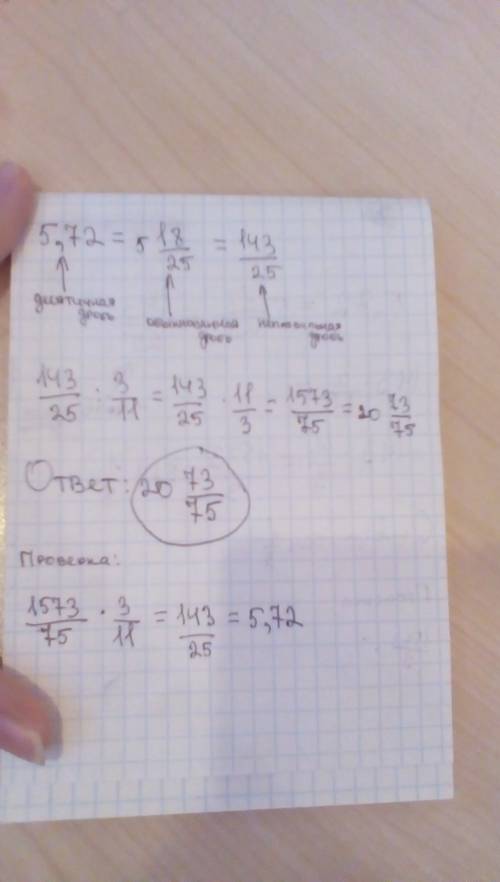 5,72 = 5 18/25 = 143/25
десятичная дробь
обыкновенная дробь
неправильная дробь
143/25 · 3/11 = 143/25 · 11/3 = 1573/75 = 20 73/75
Ответ: 20 73/75
Проверка:
1573/75 · 3/11 = 143/25 = 5,72